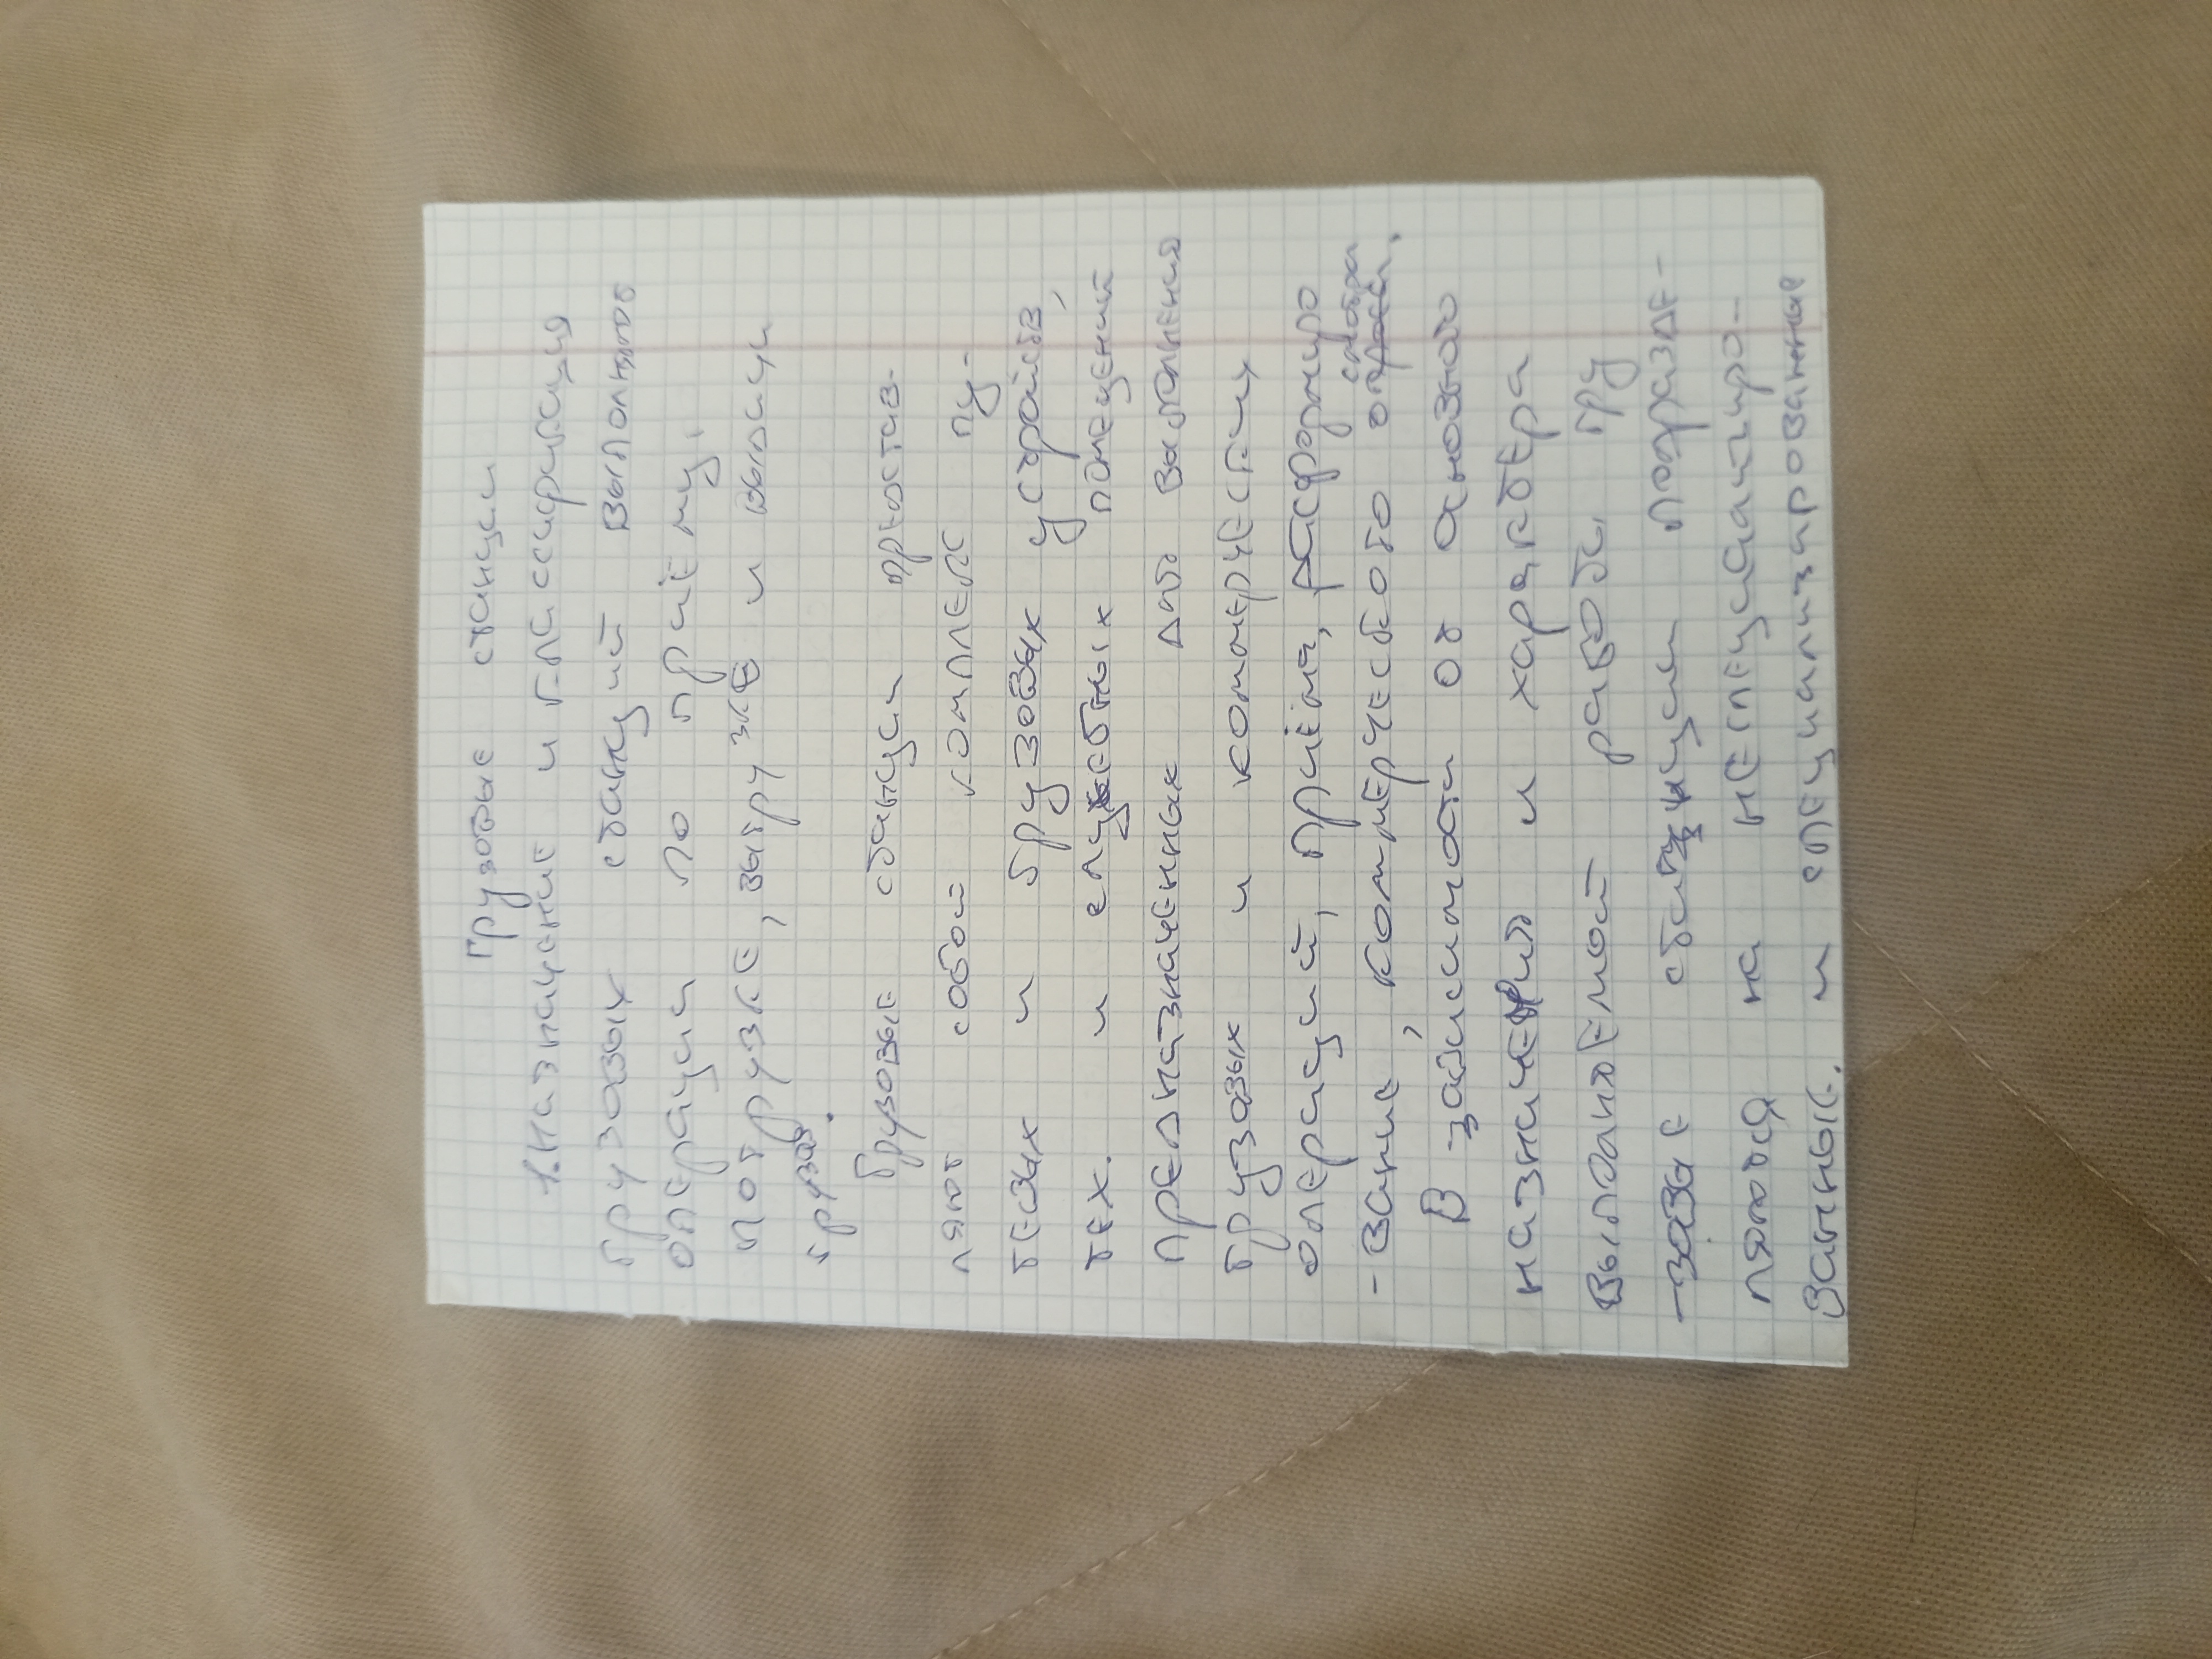 Грузовые станции
1. Назначение и классификация
грузовых станций выполняют
операции по приёму,
погрузке, выгрузке и выдачи
грузов.
Грузовые станции представ-
ляют собой комплекс пу-
тевых и грузовых устройств,
тех. и служебных помещений
предназначенных для выполнения
грузовых и коммерческих
операций, приёма, расформиро
-вание, коммерческого смотра
В зависимости от основного
назначения и характера
выполняемой работы гру
-зовые станции подразде-
ляются на неспециализиро-
ванные и специализированные